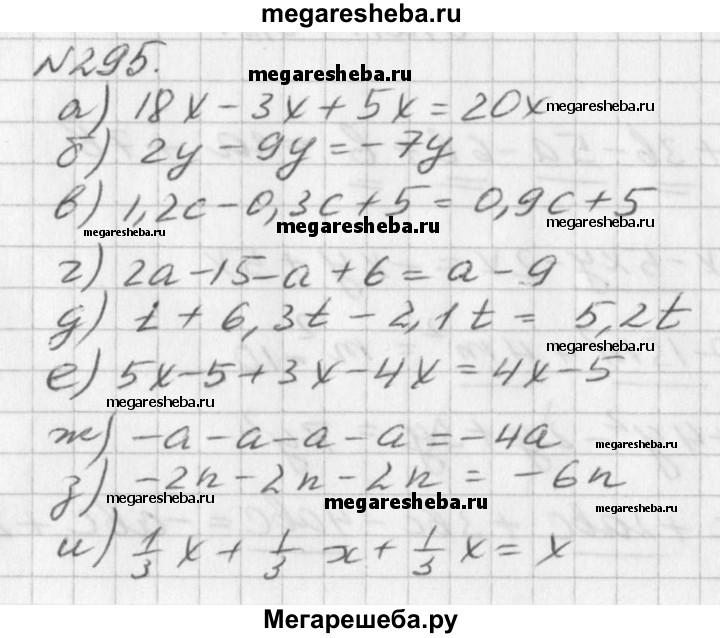 megaresheba.ru
№295.
megaresheba.ru
а) 18x - 3x + 5x = 20x
megaresheba.ru
б) 2y - 9y = -7y
в) 1,2c - 0,3c + 5 = 0,9c + 5
megaresheba.ru
megaresheba.ru
megaresheba.ru
г) 2a - 15 - a + 6 = a - 9
д) t + 6,3t - 2,1t = 5,2t
megaresheba.ru
е) 5x - 5 + 3x - 4x = 4x - 5
megaresheba.ru
ж) -a - a - a - a = -4a
megaresheba.ru
з) -2n - 2n - 2n = -6n
megaresheba.ru
megaresheba.ru
megaresheba.ru
и) 1/3 x + 1/3 x + 1/3 x = x
Мегарешеба.ру